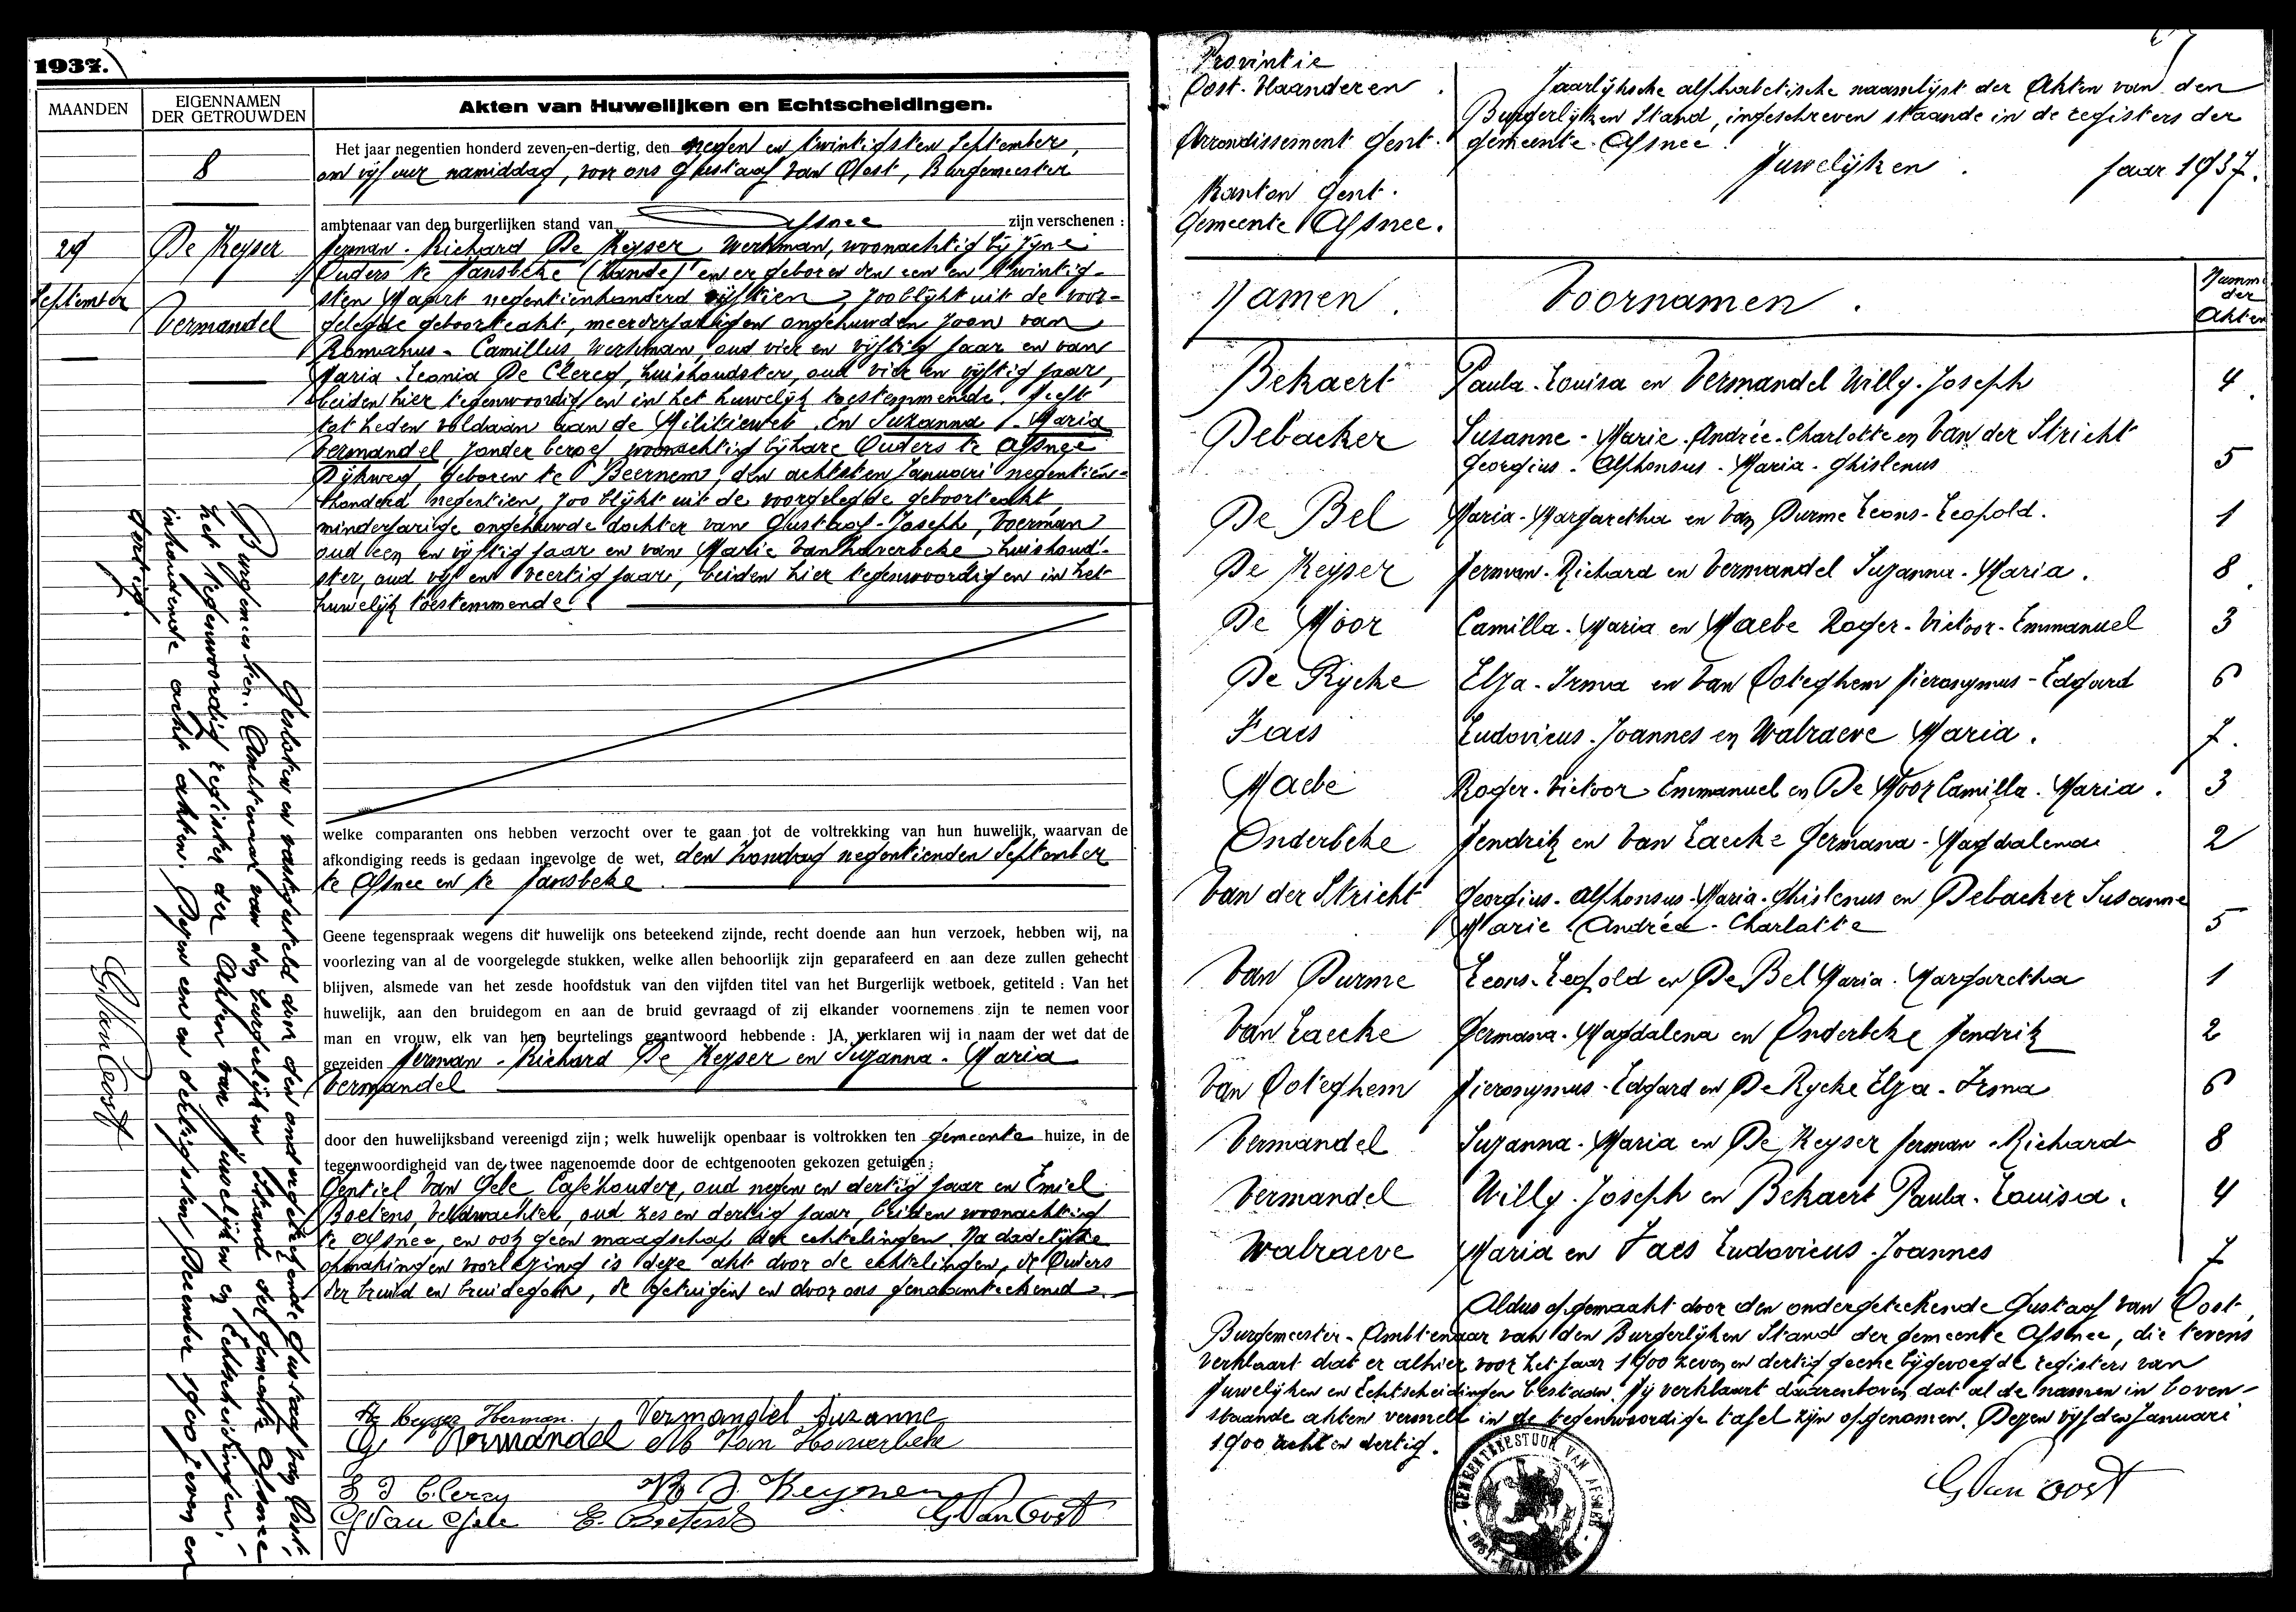 1937.
MAANDEN
EIGENNAMEN DER GETROUWDEN
Akten van Huwelijken en Echtscheidingen.
8
29 September
De Keyser
Vermandel
Het jaar negentien honderd zeven-en-dertig, den negen en twintigsten September,
om vijf uur namiddag, voor ons Gustaaf Van Oost, Burgemeester
ambtenaar van den burgerlijken stand van Afsnee zijn verschenen :
Herman-Richard De Keyser, werkman, woonachtig bij zijne
Ouders te Hansbeke (Lande) en er geboren den een en twintig-
sten Maart negentienhonderd vijftien, zoo blijkt uit de voor-
gelegde geboorteakt, meerderjarigen ongehuwden zoon van
Romanus-Camillus, werkman, oud vier en vijftig jaar en van
Maria-Leonia De Clercq, huishoudster, oud vier en vijftig jaar,
beiden hier tegenwoordig en in het huwelijk toestemmende. Heeft
tot heden voldaan aan de Militiewet. En Suzanna-Maria
Vermandel, zonder beroep, woonachtig bij hare Ouders te Afsnee
Dijkweg, geboren te Beernem, den achtsten Januari negentien-
honderd negentien, zoo blijkt uit de voorgelegde geboorteakt,
minderjarige ongehuwde dochter van Gustaaf-Joseph, Voerman
oud een en vijftig jaar en van Marie Van Haverbeke huishoud-
ster, oud vijf en veertig jaar, beiden hier tegenwoordig en in het
huwelijk toestemmende.
welke comparanten ons hebben verzocht over te gaan tot de voltrekking van hun huwelijk, waarvan de
afkondiging reeds is gedaan ingevolge de wet, den Zondag negentienden September
te Afsnee en te Hansbeke.
Geene tegenspraak wegens dit huwelijk ons beteekend zijnde, recht doende aan hun verzoek, hebben wij, na
voorlezing van al de voorgelegde stukken, welke allen behoorlijk zijn geparafeerd en aan deze zullen gehecht
blijven, alsmede van het zesde hoofdstuk van den vijfden titel van het Burgerlijk wetboek, getiteld : Van het
huwelijk, aan den bruidegom en aan de bruid gevraagd of zij elkander voornemens zijn te nemen voor
man en vrouw, elk van hen beurtelings geantwoord hebbende : JA, verklaren wij in naam der wet dat de
gezeiden Herman-Richard De Keyser en Suzanna-Maria
Vermandel
door den huwelijksband vereenigd zijn ; welk huwelijk openbaar is voltrokken ten gemeente huize, in de
tegenwoordigheid van de twee nagenoemde door de echtgenooten gekozen getuigen :
Gentiel Van Gele, Caféhouder, oud negen en dertig jaar en Emiel
Boetens, veldwachter, oud zes en dertig jaar, beiden woonachtig
te Afsnee, en ook geen maagschap der echtelingen. Na dadelijke
opmaking en voorlezing is deze akt door de echtelingen, de Ouders
der bruid en bruidegom, de getuigen en door ons genaamteekend.
De Keyser Herman. Vermandel Suzanne
G. Vermandel M Van Haverbeke
L D Clercq R. D. Keyser
G Van Gele E. Boetens G Van Oost
Gesloten en vastgesteld door den ondergeteekende Gustaaf Van Oost,
Burgemeester. Ambtenaar van den burgerlijken Stand der gemeente Afsnee
het tegenwoordig register der Akten van Huwelijken en Echtscheidingen,
inhoudende acht akten. Dezen een en dertigsten December 1900 zeven en
dertig.
G Van Oost
Provintie
Oost-Vlaanderen
Arrondissement Gent.
Kanton Gent.
Gemeente Afsnee.
Jaarlijksche alphabetische naamlijst der Akten van den
Burgerlijken Stand, ingeschreven staande in de registers der
gemeente Afsnee.
Huwelijken. Jaar 1937.
Namen. Voornamen. Numm. der Akten
Bekaert Paula-Louisa en Vermandel Willy-Joseph 4
Debacker Susanne-Marie-Andrée-Charlotte en Van der Stricht
Georgius-Alphonsus-Maria-Ghislenus 5
De Bel Maria-Margaretha en Van Durme Leons-Leopold. 1
De Keyser Herman-Richard en Vermandel Suzanna-Maria. 8
De Moor Camilla-Maria en Maebe Roger-Victoor-Emmanuel 3
De Rycke Elza-Irma en Van Ooteghem Hieronymus-Edgard 6
Faes Ludovicus-Joannes en Walraeve Maria. 7.
Maebe Roger-Victoor-Emmanuel en De Moor Camilla-Maria. 3
Onderbeke Hendrik en Van Laecke Germana-Magdalena 2
Van der Stricht Georgius-Alphonsus-Maria-Ghislenus en Debacker Susanne
Marie-Andrée-Charlotte 5
Van Durme Leons-Leopold en De Bel Maria-Margaretha 1
Van Laecke Germana-Magdalena en Onderbeke Hendrik 2
Van Ooteghem Hieronymus-Edgard en De Rycke Elza-Irma 6
Vermandel Suzanna-Maria en De Keyser Herman-Richard 8
Vermandel Willy-Joseph en Bekaert Paula-Louisa. 4
Walraeve Maria en Faes Ludovicus-Joannes 7
Aldus opgemaakt door den ondergeteekende Gustaaf Van Oost,
Burgemeester-Ambtenaar van den Burgerlijken Stand der gemeente Afsnee, die tevens
verklaart dat er alhier voor het jaar 1900 zeven en dertig geene bijgevoegde registers van
Huwelijken en Echtscheidingen bestaan. Hij verklaart daarenboven dat al de namen in boven-
staande akten vermeld in de tegenwoordige tafel zijn opgenomen. Dezen vijfden Januari
1900 acht en dertig.
G Van Oost
GEMEENTEBESTUUR VAN AFSNEE
OOST-VLAANDEREN